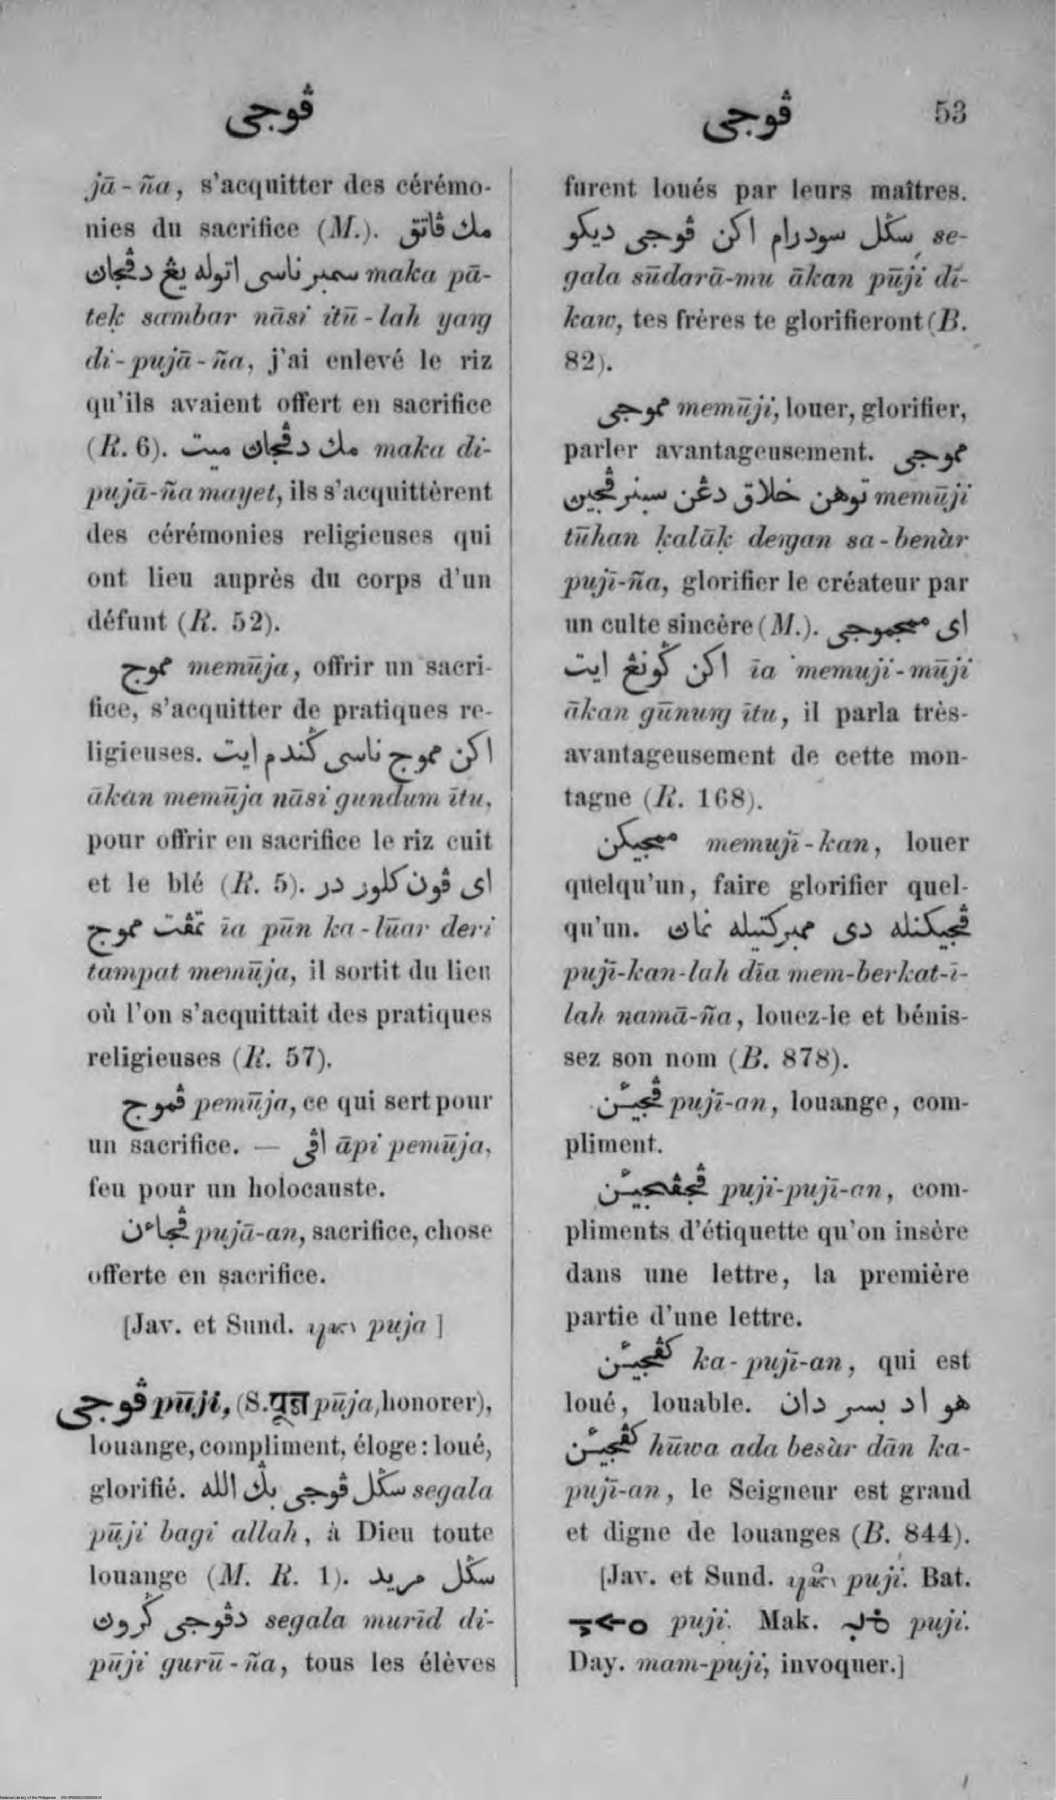 ڤوجي
ڤوجي 53
jā-ña, s'acquitter des cérémo-
nies du sacrifice (M.). مك ڤاتق
سمبر ناسي اتوله يڠ دڤجاڽ maka pā-
teḳ sambar nāsi ītū-lah yaṛg
di-pujā-ña, j'ai enlevé le riz
qu'ils avaient offert en sacrifice
(R. 6). مك دڤجاڽ ميت maka di-
pujā-ña mayet, ils s'acquittèrent
des cérémonies religieuses qui
ont lieu auprès du corps d'un
défunt (R. 52).
مموج memūja, offrir un sacri-
fice, s'acquitter de pratiques re-
ligieuses. اكن مموج ناسي ݢندم ايت
ākan memūja nāsi gundum ītu,
pour offrir en sacrifice le riz cuit
et le blé (R. 5). اي ڤون كلور در
تمڤت مموج īa pūn ka-lūar deri
tampat memūja, il sortit du lieu
où l'on s'acquittait des pratiques
religieuses (R. 57).
ڤموج pemūja, ce qui sert pour
un sacrifice. — اڤي āpi pemūja,
feu pour un holocauste.
ڤجاءن pujā-an, sacrifice, chose
offerte en sacrifice.
[Jav. et Sund. puja ]
ڤوجي pūji, (S. पूज pūja, honorer),
louange, compliment, éloge: loué,
glorifié. سݢل ڤوجي بݢ الله segala
pūji bagi allah, à Dieu toute
louange (M. R. 1). سݢل مريد
دڤوجي ݢروڽ segala murīd di-
pūji gurū-ña, tous les élèves
furent loués par leurs maîtres.
سݢل سودرام اكن ڤوجي ديكو se-
gala sūdarā-mu ākan pūji dī-
kaw, tes frères te glorifieront (B.
82).
مموجي memūji, louer, glorifier,
parler avantageusement. مموجي
توهن خلاق دڠن سبنر ڤجين memūji
tūhan ḳalāḳ deṛgan sa-benàr
pujī-ña, glorifier le créateur par
un culte sincère (M.). اي ممجموجي
اكن ݢونڠ ايت īa memuji-mūji
ākan gūnuṛg ītu, il parla très-
avantageusement de cette mon-
tagne (R. 168).
ممجيكن memujī-kan, louer
quelqu'un, faire glorifier quel-
qu'un. ڤجيكنله دي ممبركتيله نماڽ
pujī-kan-lah dīa mem-berkat-ī-
lah namā-ña, louez-le et bénis-
sez son nom (B. 878).
ڤجيئن pujī-an, louange, com-
pliment.
ڤجڤجيئن puji-pujī-an, com-
pliments d'étiquette qu'on insère
dans une lettre, la première
partie d'une lettre.
كڤجيئن ka-pujī-an, qui est
loué, louable. هو اد بسر دان
كڤجيئن hūwa ada besàr dān ka-
pujī-an, le Seigneur est grand
et digne de louanges (B. 844).
[Jav. et Sund. puji. Bat.
puji. Mak. puji.
Day. mam-puji, invoquer.]